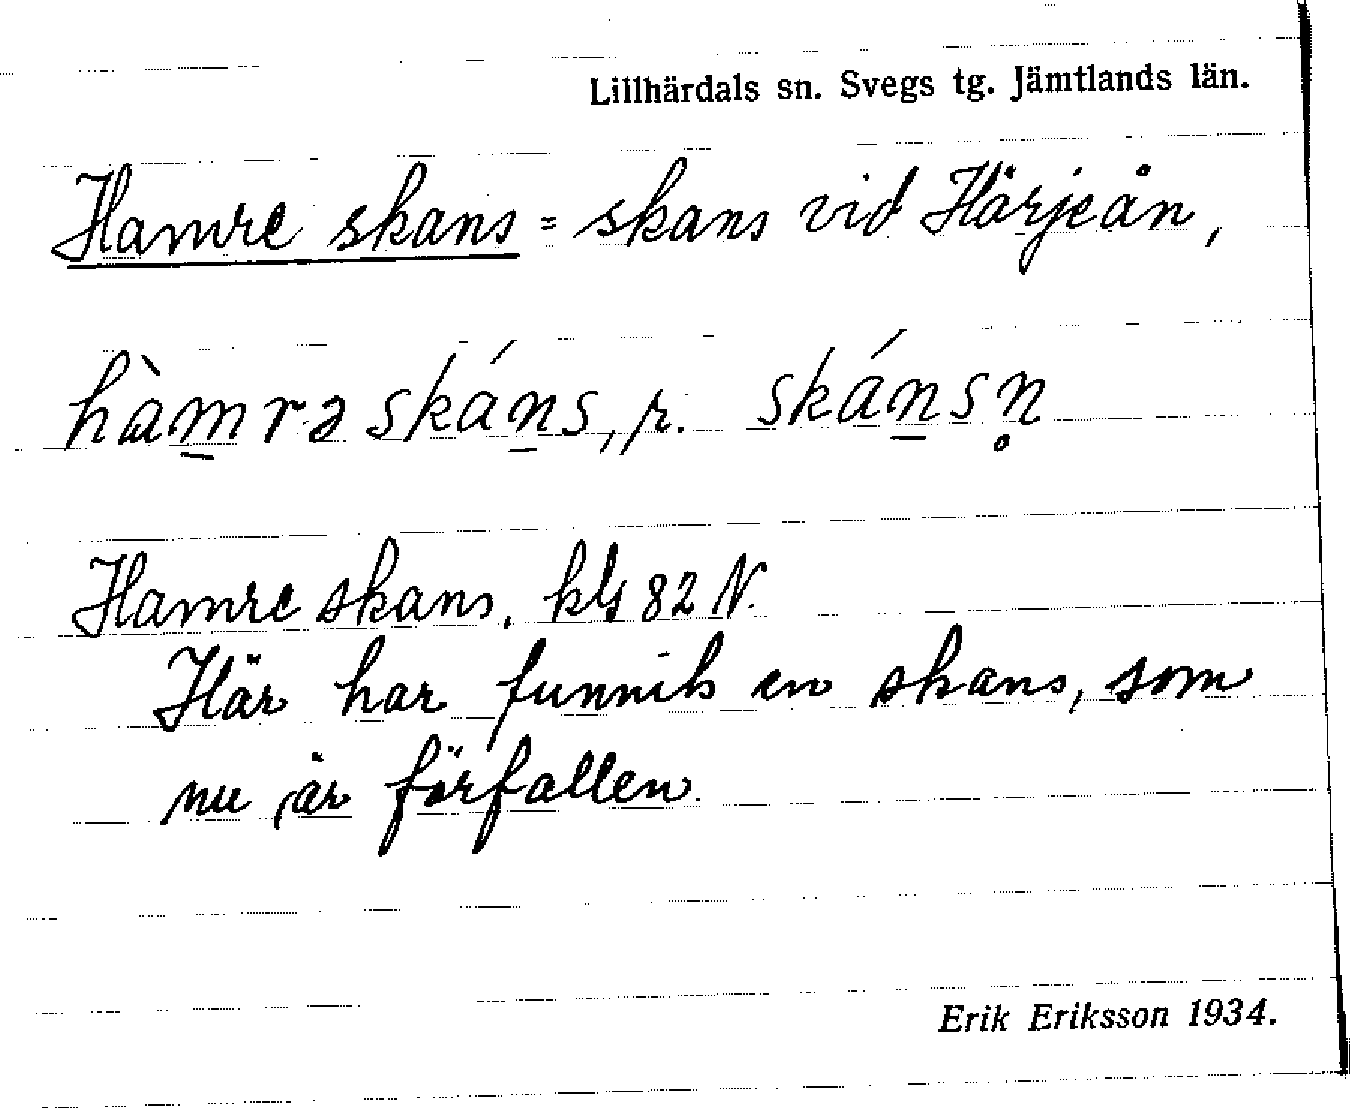 Lillhärdals sn. Svegs tg. Jämtlands län.
Hamre skans = skans vid Härjeån,
hàm̲rə skán̲s, r. skán̲sn̥
Hamre skans, kbl 82 N.
Här har funnits en skans, som
nu är förfallen.
Erik Eriksson 1934.